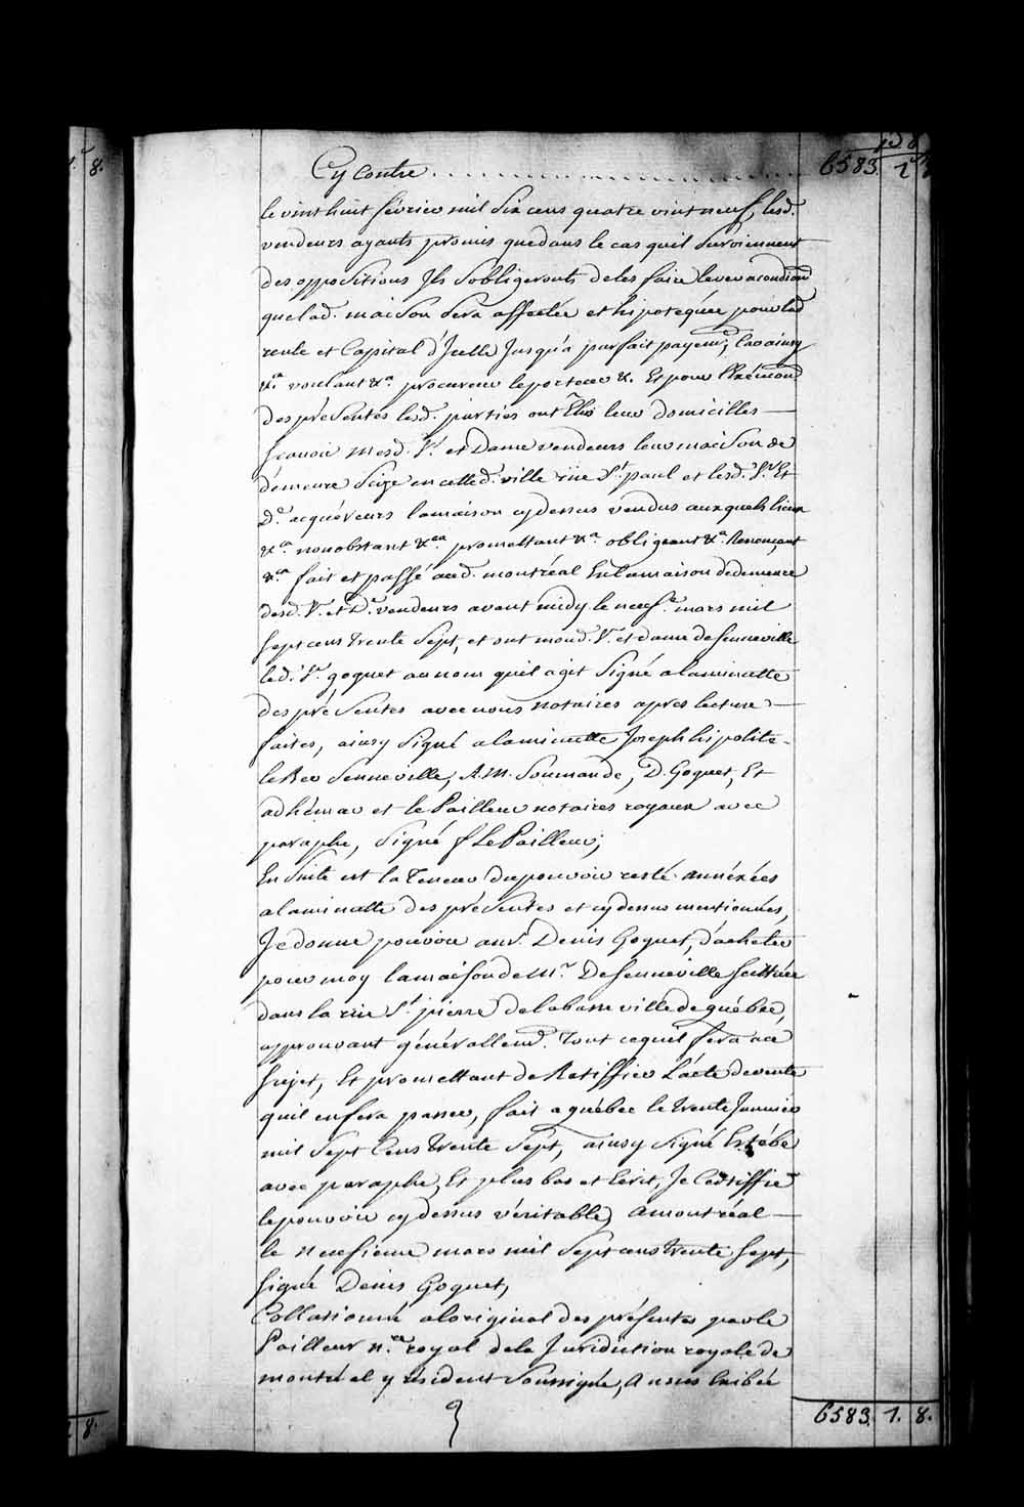 Cy Contre . . . . . . . . . . . . 6583 1 8
8.
le vint huit février mil Six cens quatre vint neuf, lesd.
vendeurs ayants promis que dans le cas quil Surviennent
des oppositions Ils Sobligeronts de les faire lever acondiaõn
quelad. maison Sera affectée et hipotéquée pour lad
rente et Capital d'Icelle Jusqu'a parfait payemt, Car ainsy
&a. voulant &a. procureur le porteur &. Et pour L'Exécuaõn
des présentes lesd. parties ont Elü leur domicilles
Scavoir mesd. Sr. et Dame vendeurs leur maison de
démeure Size en cette d. ville rüe St. paul et lesd. Sr. Et
De. acquéreurs lamaison cydessus vendus auxquels lieux
&ca. nonobstant &ca. promettant &a. obligeant &a. Renonçant
&ca. fait et passé aud. montréal En lamaison dedemeure
desd. Sr. et De. vendeurs avant midy le neufe. mars mil
Sept cens trente Sept, et ont mond. Sr. et dame de Senneville
led. Sr. goguet au nom quil agit Signé alaminutte
des présentes avec nous notaires apres lecture
faites, ainsy Signé alaminutte Joseph hipolite
le Ber Senneville, A. M. Soumande, D. Goguet, Et
adhémar et le Pailleur notaires royaux avec
paraphe, Signé f Le Pailleur;
En Suite est la Teneur du pouvoir resté annéxées
alaminutte des présentes et cydessus mentionnées,
Je donne pouvoir au sr. Denis Goguet, d'acheter
pour moy lamaison de Mr. De Senneville Scittüée
dans la rüe St. pierre de la basse ville de québec,
approuvant générallemt. Tout cequil fera ace
Sujet, Et promettant de Ratiffier L'acte devente
quil enfera passer, fait a québec le trente Janvier
mil Sept Cens trente Sept, ainsy Signé Estébe
avec paraphe, Et plus bas et Ecrit, Je Certiffie
lepouvoir cydessus véritable, amontréal
le neufieme mars mil Sept cens trente Sept,
Signé Denis Goguet,
Collationné aloriginal des présentes par le
Pailleur nre. royal dela Juridiction royale de
montréal y résident Soussigné, a nous Exibée
6583. 1. 8.
8.